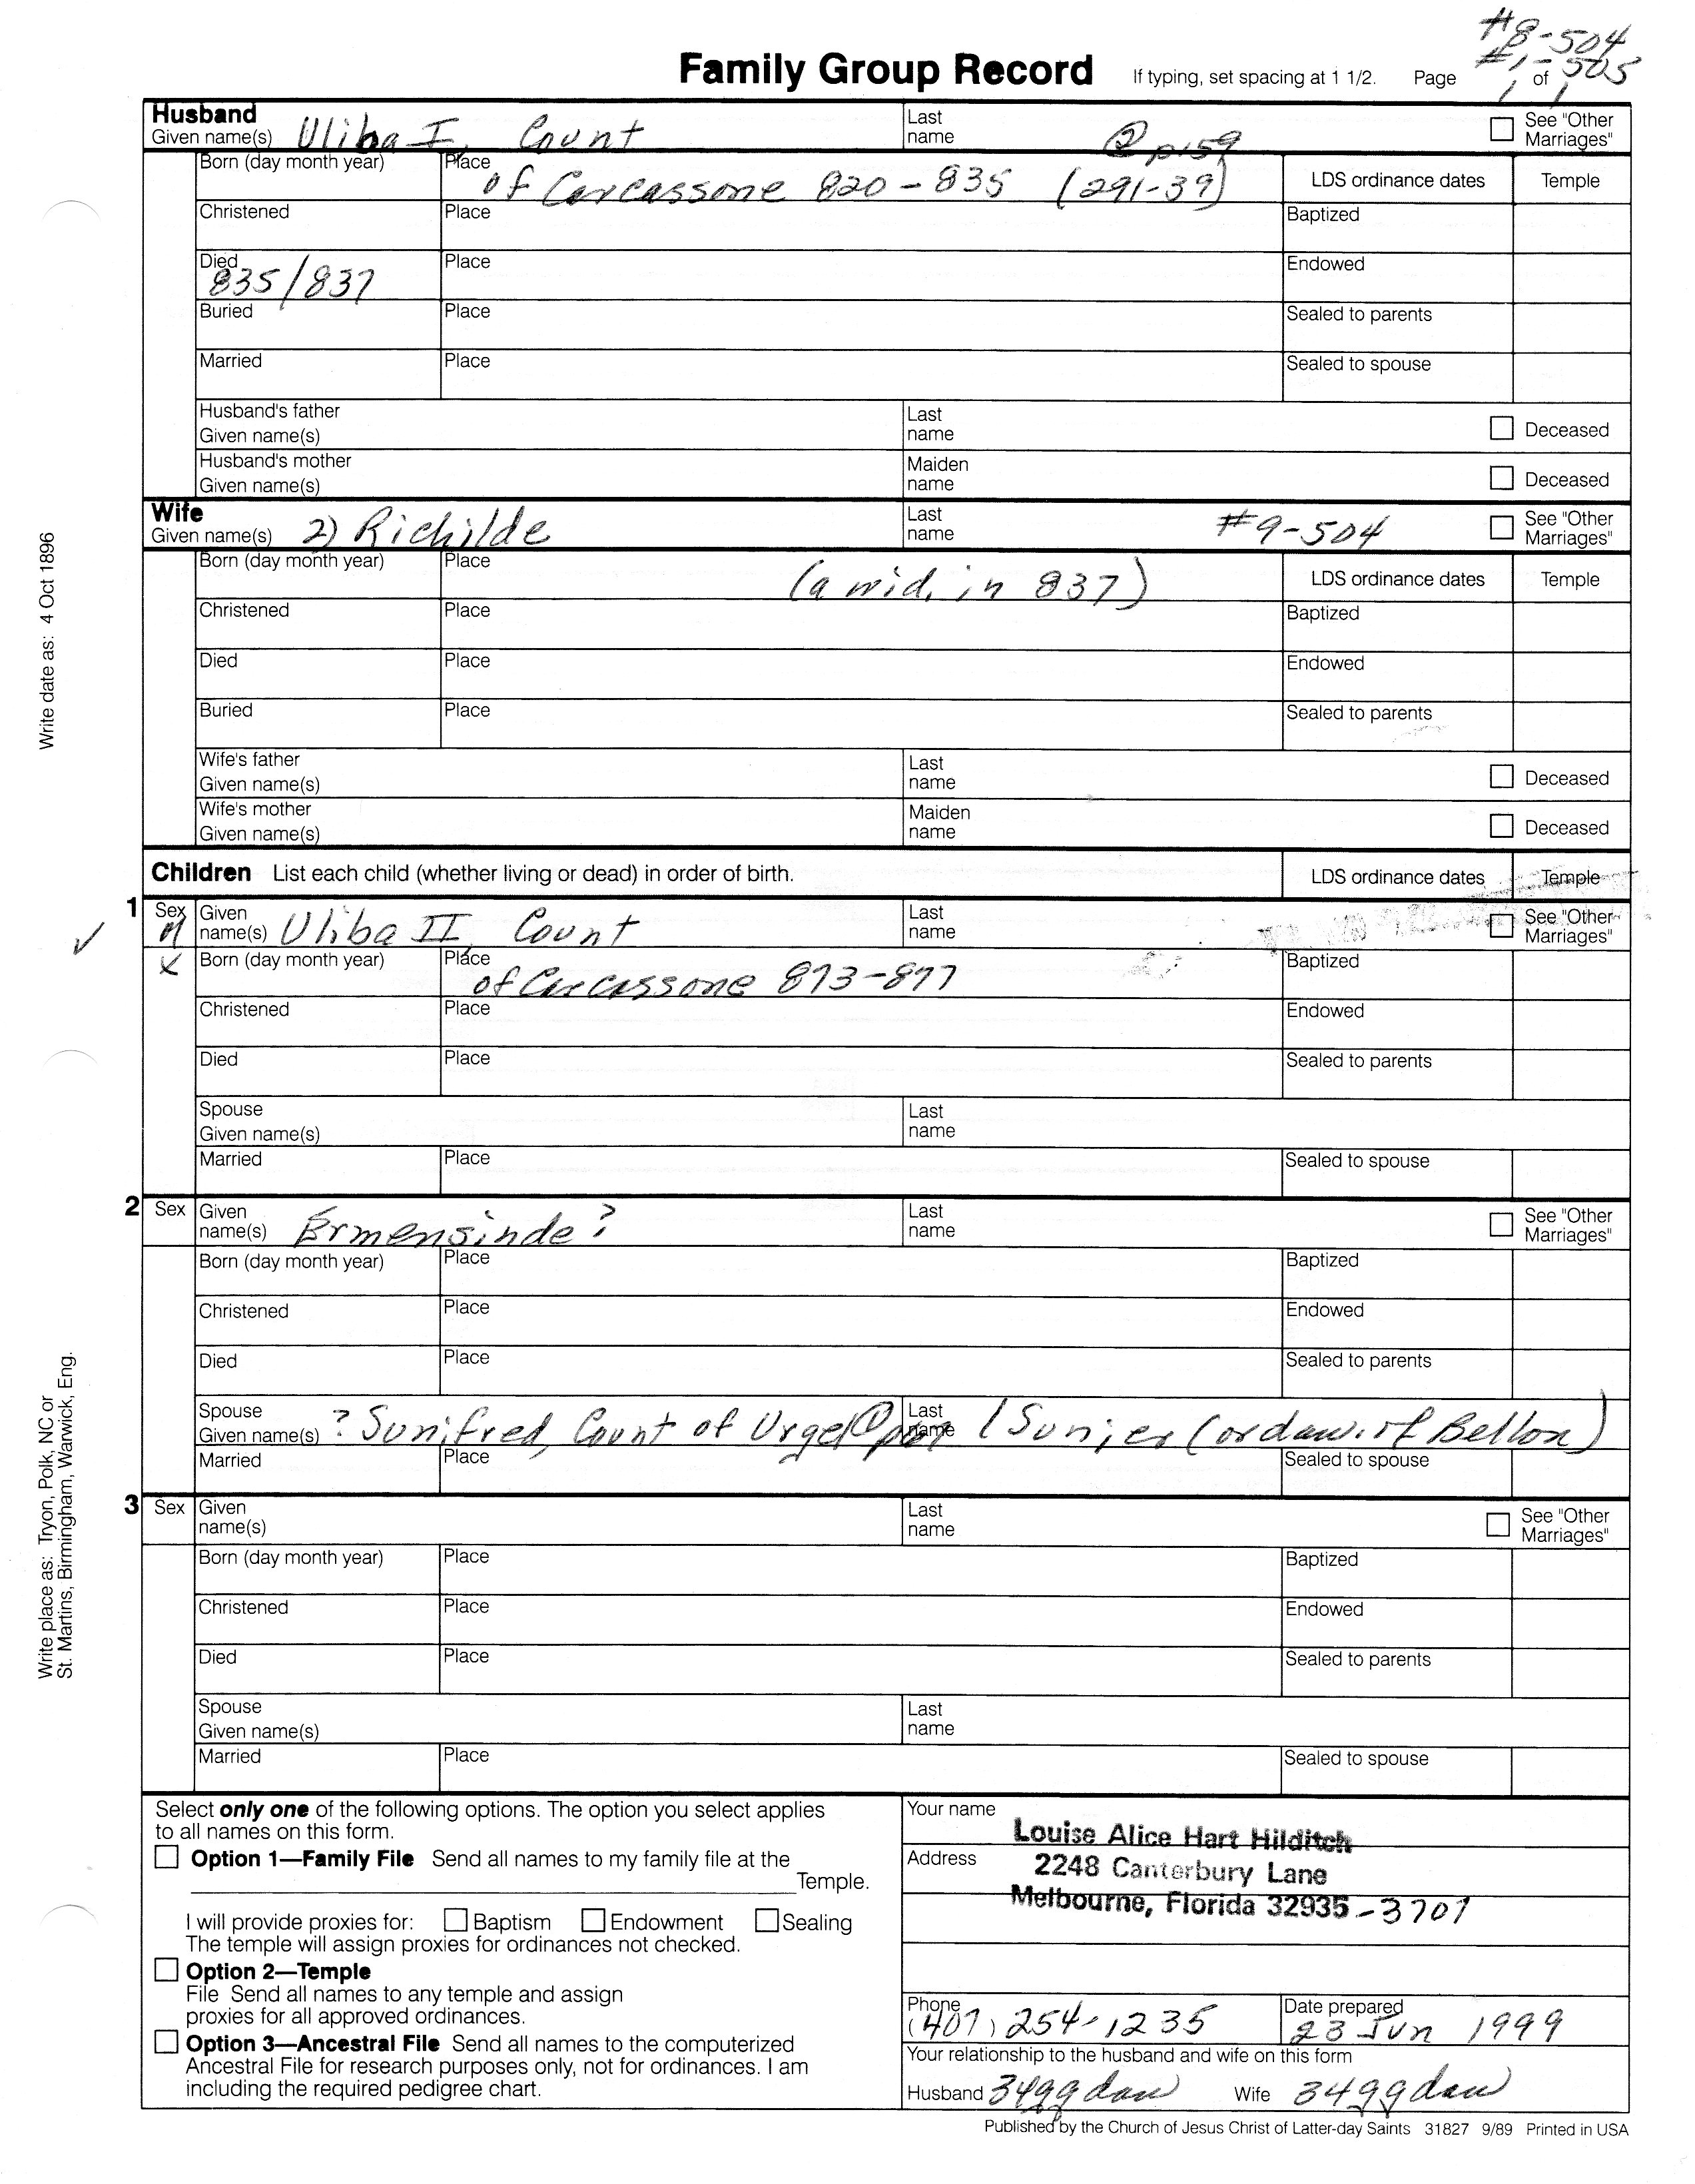 #8-504
#1-505
Family Group Record If typing, set spacing at 1 1/2. Page 1 of 1
Husband
Given name(s) Uliba I, Count Last name @ p159 See "Other Marriages"
Born (day month year) Place of Carcassone 820-835 (291-39) LDS ordinance dates Temple
Christened Place Baptized
Died 835/837 Place Endowed
Buried Place Sealed to parents
Married Place Sealed to spouse
Husband's father Given name(s) Last name Deceased
Husband's mother Given name(s) Maiden name Deceased
Wife
Given name(s) 2) Richilde Last name #9-504 See "Other Marriages"
Born (day month year) Place (a wid. in 837) LDS ordinance dates Temple
Christened Place Baptized
Died Place Endowed
Buried Place Sealed to parents
Wife's father Given name(s) Last name Deceased
Wife's mother Given name(s) Maiden name Deceased
Children List each child (whether living or dead) in order of birth. LDS ordinance dates Temple
1 Sex M Given name(s) Uliba II, Count Last name See "Other Marriages"
X Born (day month year) Place of Carcassone 873-877 Baptized
Christened Place Endowed
Died Place Sealed to parents
Spouse Given name(s) Last name
Married Place Sealed to spouse
2 Sex Given name(s) Ermensinde? Last name See "Other Marriages"
Born (day month year) Place Baptized
Christened Place Endowed
Died Place Sealed to parents
Spouse Given name(s) ? Sunifred, Count of Urgel Last name (Sunier (or daw. of Bellon)
Married Place Sealed to spouse
3 Sex Given name(s) Last name See "Other Marriages"
Born (day month year) Place Baptized
Christened Place Endowed
Died Place Sealed to parents
Spouse Given name(s) Last name
Married Place Sealed to spouse
Select only one of the following options. The option you select applies
to all names on this form.
Option 1—Family File Send all names to my family file at the
Temple.
I will provide proxies for: Baptism Endowment Sealing
The temple will assign proxies for ordinances not checked.
Option 2—Temple
File Send all names to any temple and assign
proxies for all approved ordinances.
Option 3—Ancestral File Send all names to the computerized
Ancestral File for research purposes only, not for ordinances. I am
including the required pedigree chart.
Your name Louise Alice Hart Hilditch
Address 2248 Canterbury Lane
Melbourne, Florida 32935-3707
Phone (407) 254-1235 Date prepared 23 Jun 1999
Your relationship to the husband and wife on this form
Husband 34ggdau Wife 34ggdau
Published by the Church of Jesus Christ of Latter-day Saints 31827 9/89 Printed in USA
Write date as: 4 Oct 1896
Write place as: Tryon, Polk, NC or
St. Martins, Birmingham, Warwick, Eng.